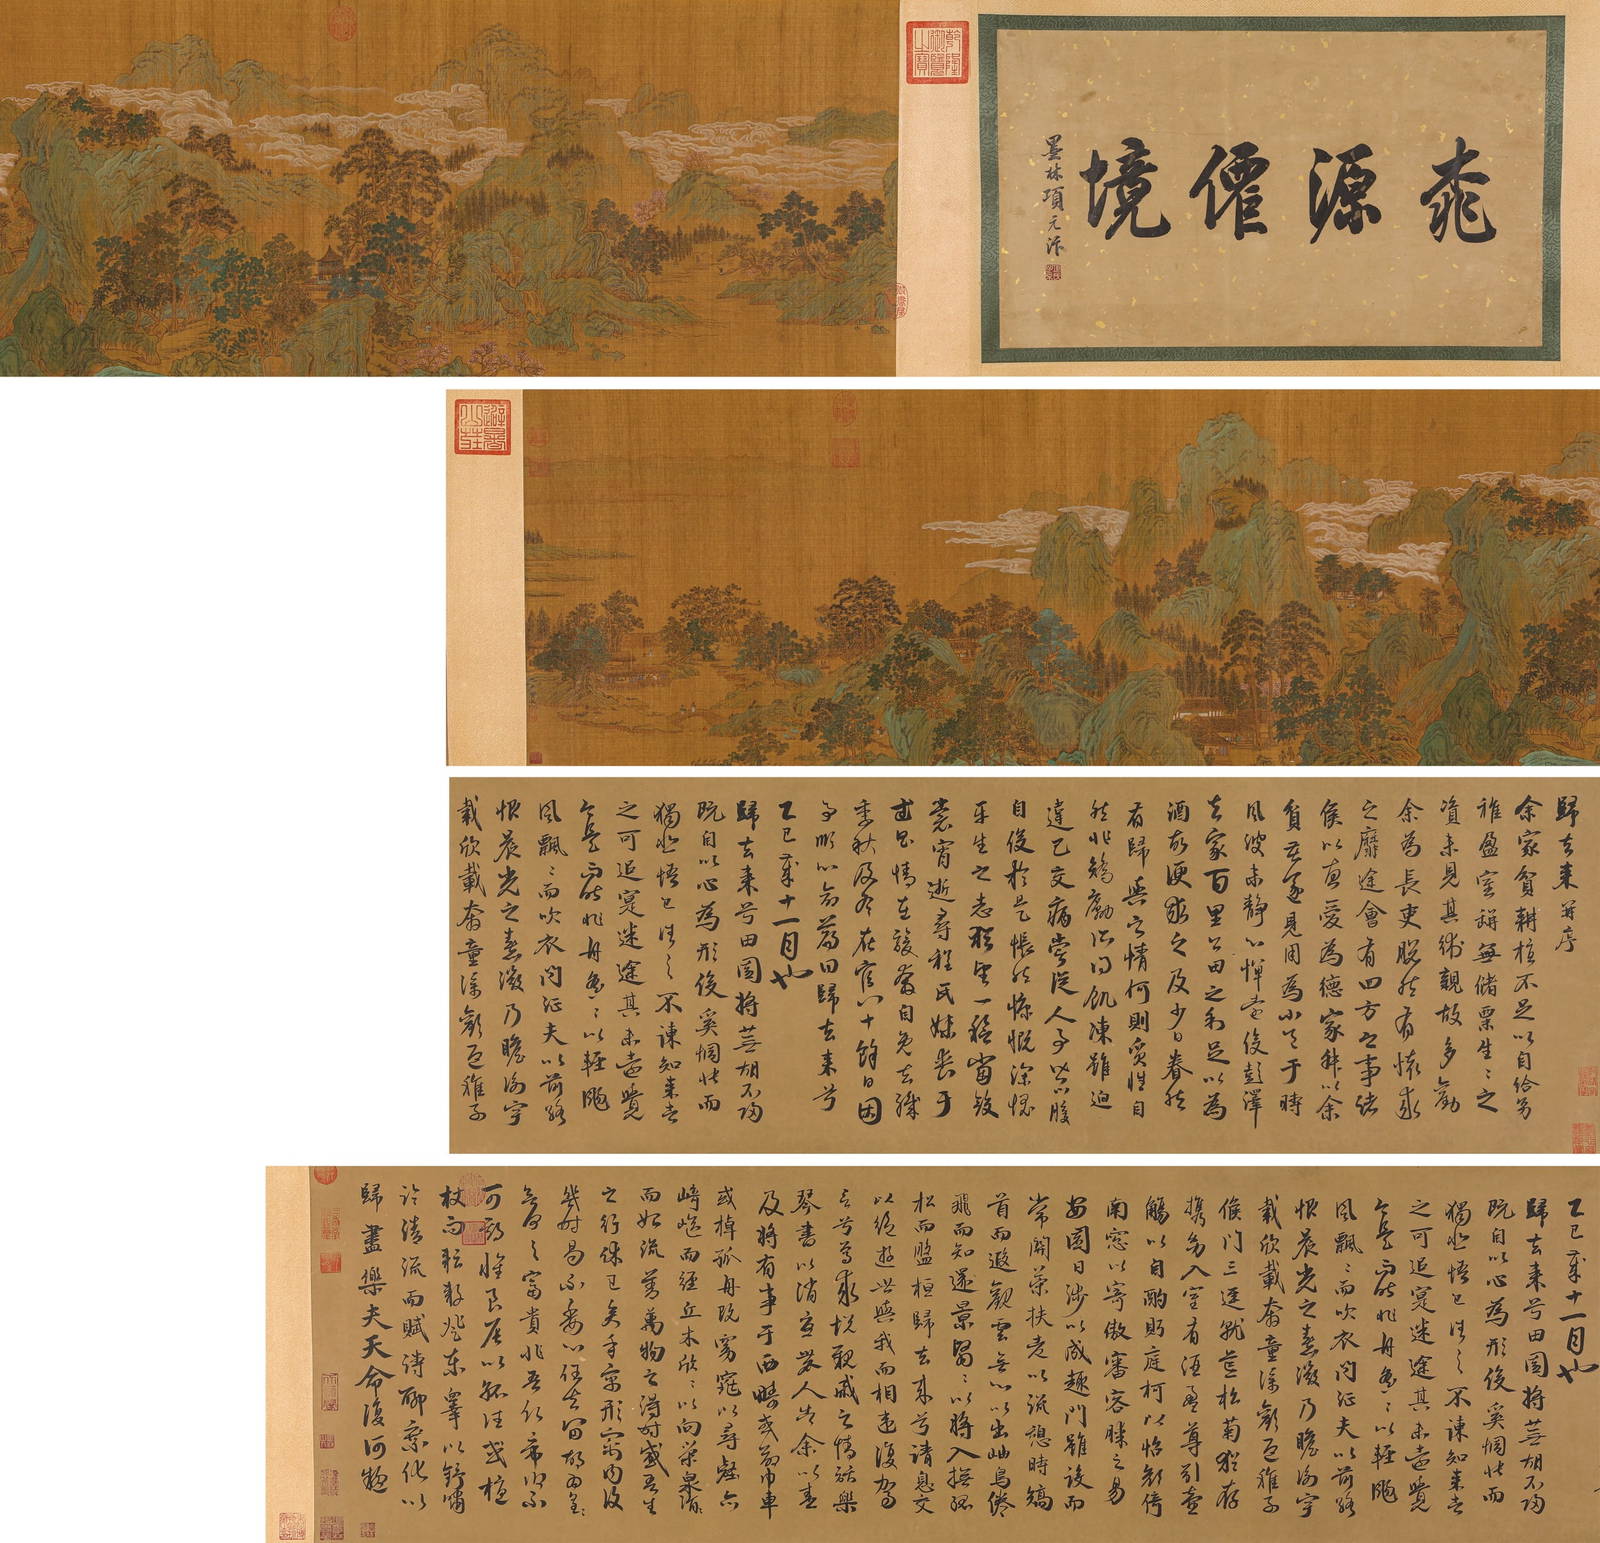 桃源僊境
墨林項元汴
乾隆御覽之寶
避暑山莊
歸去來并序
余家貧耕植不足以自給幼
稚盈室缾無儲粟生生之
資未見其術親故多勸
余為長吏脫然有懷求
之靡途會有四方之事諸
侯以惠愛為德家叔以余
貧苦遂見用為小邑于時
風波未靜心憚遠役彭澤
去家百里公田之利足以為
酒故便求之及少日眷然
有歸與之情何則質性自
然非矯勵所得飢凍雖迫
違己交病嘗從人事皆口腹
自役於是悵然慷慨深愧
平生之志猶望一稔當斂
裳宵逝尋程氏妹喪于
武昌情在駿奔自免去職
秋及冬在官八十餘日因
事順心命篇曰歸去來兮
乙巳歲十一月也
歸去來兮田園將蕪胡不歸
既自以心為形役奚惆悵而
獨悲悟已往之不諫知來者
之可追寔迷途其未遠覺
今是而昨非舟遙〻以輕颺
風飄〻而吹衣問征夫以前路
恨晨光之熹微乃瞻衡宇
載欣載奔童僕歡迎稚子
乙巳歲十一月也
歸去來兮田園將蕪胡不歸
既自以心為形役奚惆悵而
獨悲悟已往之不諫知來者
之可追寔迷途其未遠覺
今是而昨非舟遙〻以輕颺
風飄〻而吹衣問征夫以前路
恨晨光之熹微乃瞻衡宇
載欣載奔童僕歡迎稚子
候門三逕就荒松菊猶存
攜幼入室有酒盈尊引壺
觴以自酌眄庭柯以怡顏倚
南窓以寄傲審容膝之易
安園日涉以成趣門雖設而
常關策扶老以流憩時矯
首而遐觀雲無心以出岫鳥倦
飛而知還景翳〻以將入撫孤
松而盤桓歸去來兮請息交
以絕遊世與我而相違復駕
言兮焉求悅親戚之情話樂
琴書以消憂農人告余以春
及將有事于西疇或命巾車
或棹孤舟既窈窕以尋壑亦
崎嶇而經丘木欣〻以向榮泉涓〻
而始流羨萬物之得時感吾生
之行休已矣乎寓形宇內復
幾時曷不委心任去留胡為遑〻
欲何之富貴非吾願帝鄉不
可期懷良辰以孤往或植
杖而耘耔登東皋以舒嘯
臨清流而賦詩聊乘化以
歸盡樂夫天命復何疑